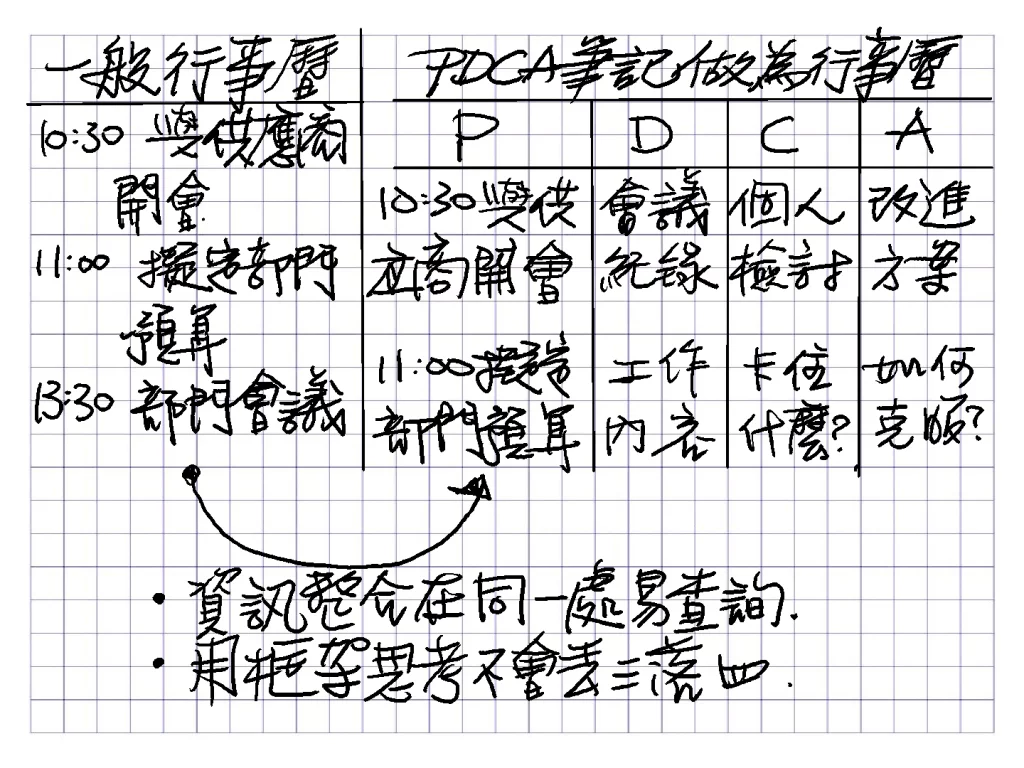 一般行事曆
10:30 與供應商
開會
11:00 擬定部門
預算
13:30 部門會議
PDCA筆記做為行事曆
P D C A
10:30與供 會議 個人 改進
应商開會 紀錄 檢討 方案
11:00擬定 工作 卡住 如何
部門預算 內容 什麼? 克服?
・資訊整合在同一處易查詢.
・用框架思考不會丟三落四.